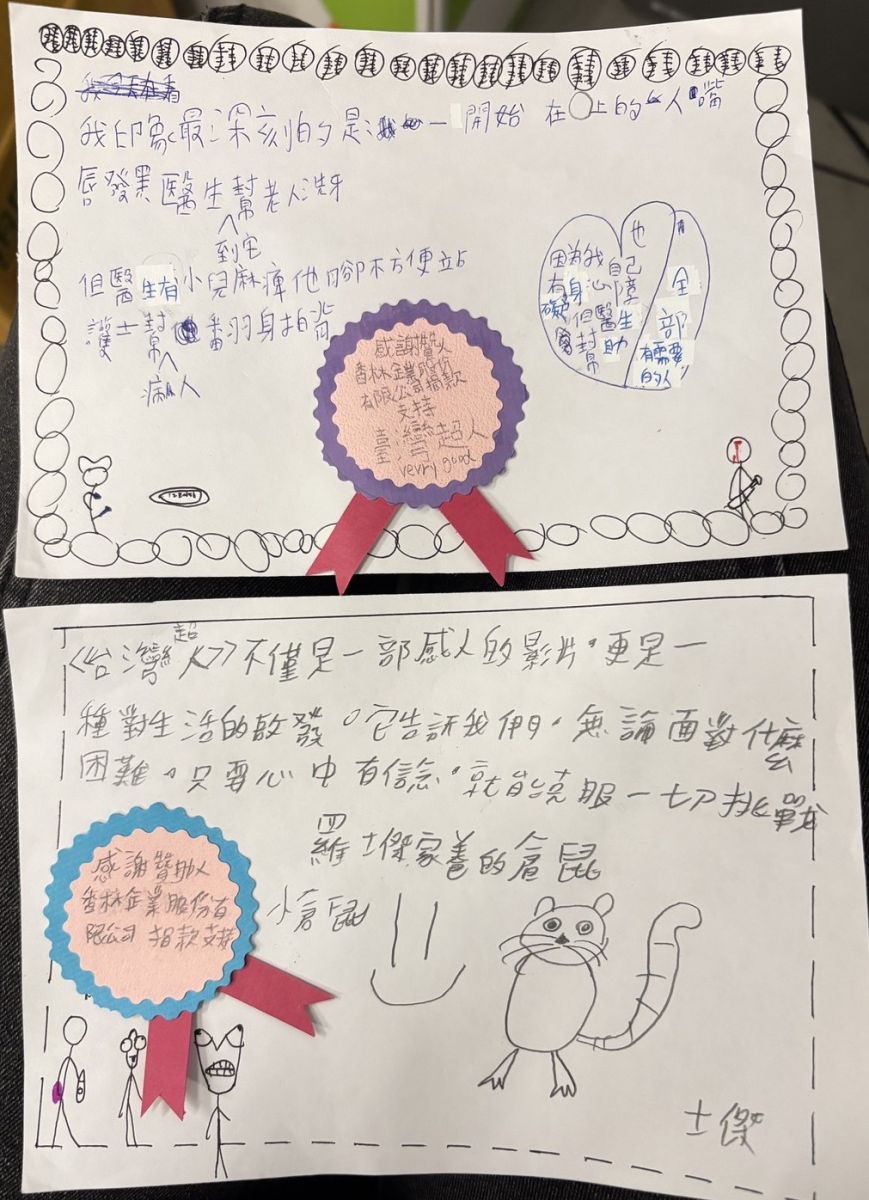 我印象最深刻的是 一開始 在 上的 人嘴
唇發黑醫生幫老人洗牙
到宅
但醫生有小兒麻痺他腳不方便站
護士幫 翻身拍背
病人
因為我也
有身心自己障
礙 但醫生
幫助
有
全
部
有需要
的人
感謝贊人
香林企業股份
有限公司捐款
支持
臺灣超人
very good
《台灣超人》不僅是一部感人的影片。更是一
種對生活的啟發。它告訴我們。無論面對什麼
困難。只要心中有信念。就能克服一切挑戰
羅士傑家養的倉鼠
小倉鼠
感謝贊助人
香林企業股份有
限公司 捐款支持
士傑